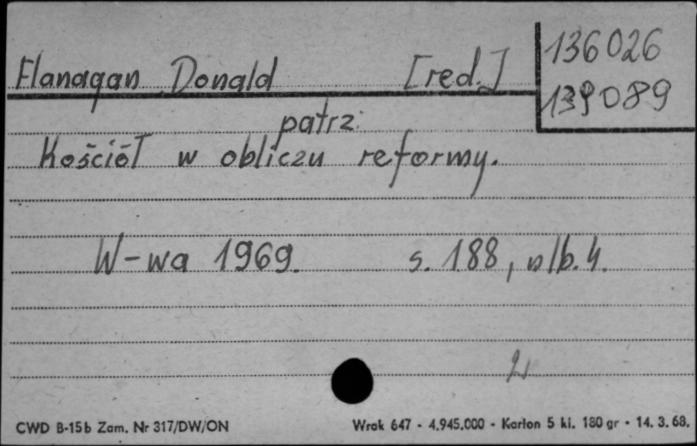 136026
Flanagan Donald [red.]
139089
patrz:
Kościół w obliczu reformy.
W-wa 1969. s. 188, nlb. 4.
2
CWD B-15b Zam. Nr 317/DW/ON Wrok 647 - 4.945.000 - Karton 5 kl. 180 gr - 14. 3. 68.